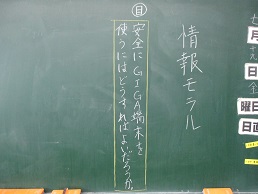 情報モラル
目
安全にGIGA端末を
使うにはどうすればよいだろうか。
月
日
曜日
日直